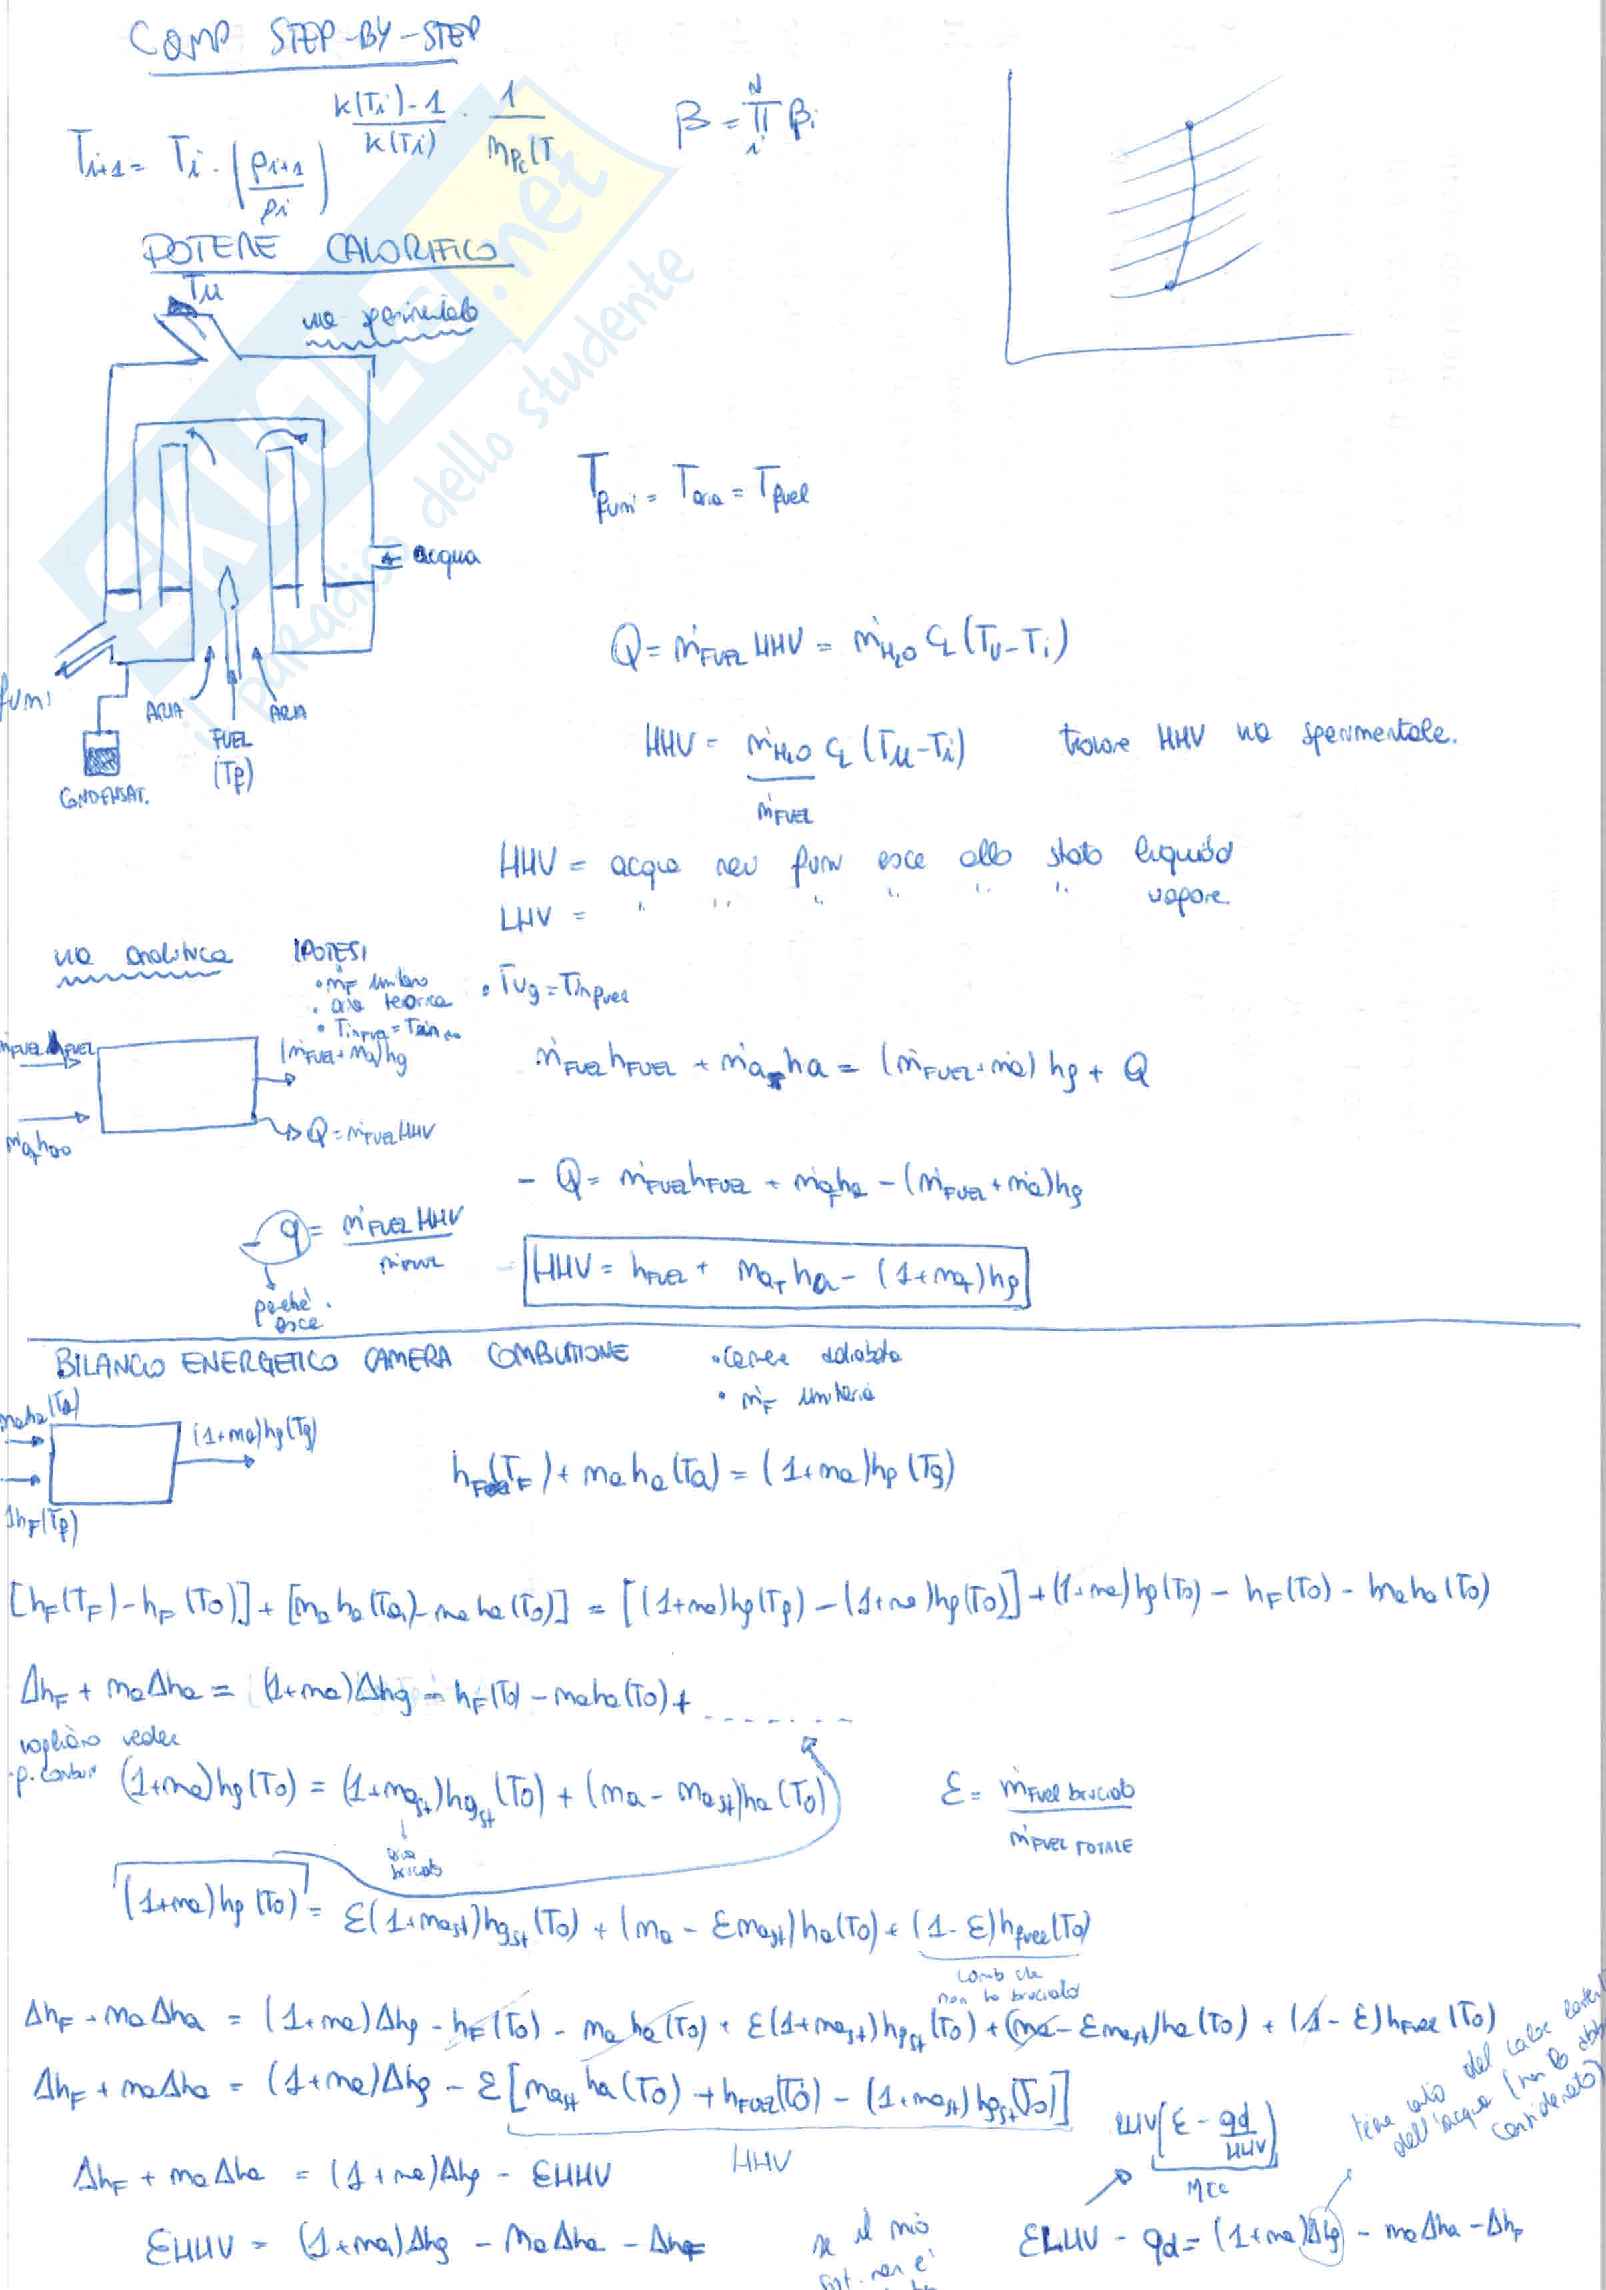 COMP STEP-BY-STEP
T_{i+1} = T_i · (p_{i+1}/p_i)^{k(T_i)-1/k(T_i) · 1/η_{pc}(T}
β = ∏_i^N β_i
POTERE CALORIFICO
Tu
via sperimentale
T_fumi = T_aria = T_fuel
acqua
Q = ṁ_FUEL HHV = ṁ_H2O c_L (T_U - T_i)
fumi
ARIA
ARIA
FUEL
(T_f)
CONDENSAT.
HHV = ṁ_H2O c_L (T_u - T_i) / ṁ_FUEL trovare HHV via sperimentale.
HHV = acqua nei fumi esce allo stato liquido
LHV = " " " " " " vapore.
via analitica
IPOTESI
• ṁ_F unitaria
• aria teorica
• T_ug = T_in fuel
ṁ_FUEL h_FUEL
(ṁ_FUEL + ṁ_a) h_g
ṁ_FUEL h_FUEL + ṁ_aT h_a = (ṁ_FUEL + ṁ_a) h_g + Q
Q = ṁ_FUEL HHV
- Q = ṁ_FUEL h_FUEL + ṁ_aT h_a - (ṁ_FUEL + ṁ_a) h_g
- q = ṁ_FUEL HHV / ṁ_FUEL
perché esce
- HHV = h_FUEL + m_aT h_a - (1 + m_aT) h_g
BILANCIO ENERGETICO CAMERA COMBUSTIONE
• camera adiabatica
• ṁ_F unitaria
m_a h_a (T_a)
(1+m_a) h_g (T_g)
1 h_F (T_f)
h_F (T_F) + m_a h_a (T_a) = (1+m_a) h_g (T_g)
[h_F(T_F) - h_F(T_0)] + [m_a h_a(T_a) - m_a h_a(T_0)] = [(1+m_a) h_g(T_g) - (1+m_a) h_g(T_0)] + (1+m_a) h_g(T_0) - h_F(T_0) - m_a h_a(T_0)
Δh_F + m_a Δh_a = (1+m_a) Δh_g - h_F(T_0) - m_a h_a(T_0) + - - - - - - -
vogliamo vedere
(1+m_a) h_g(T_0) = (1+m_a_st) h_g_st(T_0) + (m_a - m_a_st) h_a(T_0)
aria
bruciata
ε = ṁ_FUEL bruciato / ṁ_FUEL TOTALE
(1+m_a) h_g(T_0) = ε(1+m_a_st) h_g_st(T_0) + (m_a - ε m_a_st) h_a(T_0) + (1-ε) h_fuel(T_0)
comb che
non ha bruciato
Δh_F + m_a Δh_a = (1+m_a) Δh_g - h_F(T_0) - m_a h_a(T_0) + ε(1+m_a_st) h_g_st(T_0) + (m_a - ε m_a_st) h_a(T_0) + (1-ε) h_FUEL(T_0)
Δh_F + m_a Δh_a = (1+m_a) Δh_g - ε[m_a_st h_a(T_0) + h_FUEL(T_0) - (1+m_a_st) h_g_st(T_0)]
HHV
Δh_F + m_a Δh_a = (1+m_a) Δh_g - εHHV
(ε - q_d/HHV)
tiene conto del calore
dell'acqua (non lo
considerato)
εHHV = (1+m_a) Δh_g - m_a Δh_a - Δh_F
se il mio
εLHV - q_d = (1+m_a) Δh_g - m_a Δh_a - Δh_F
SKUOLA.net
il paradiso dello studente